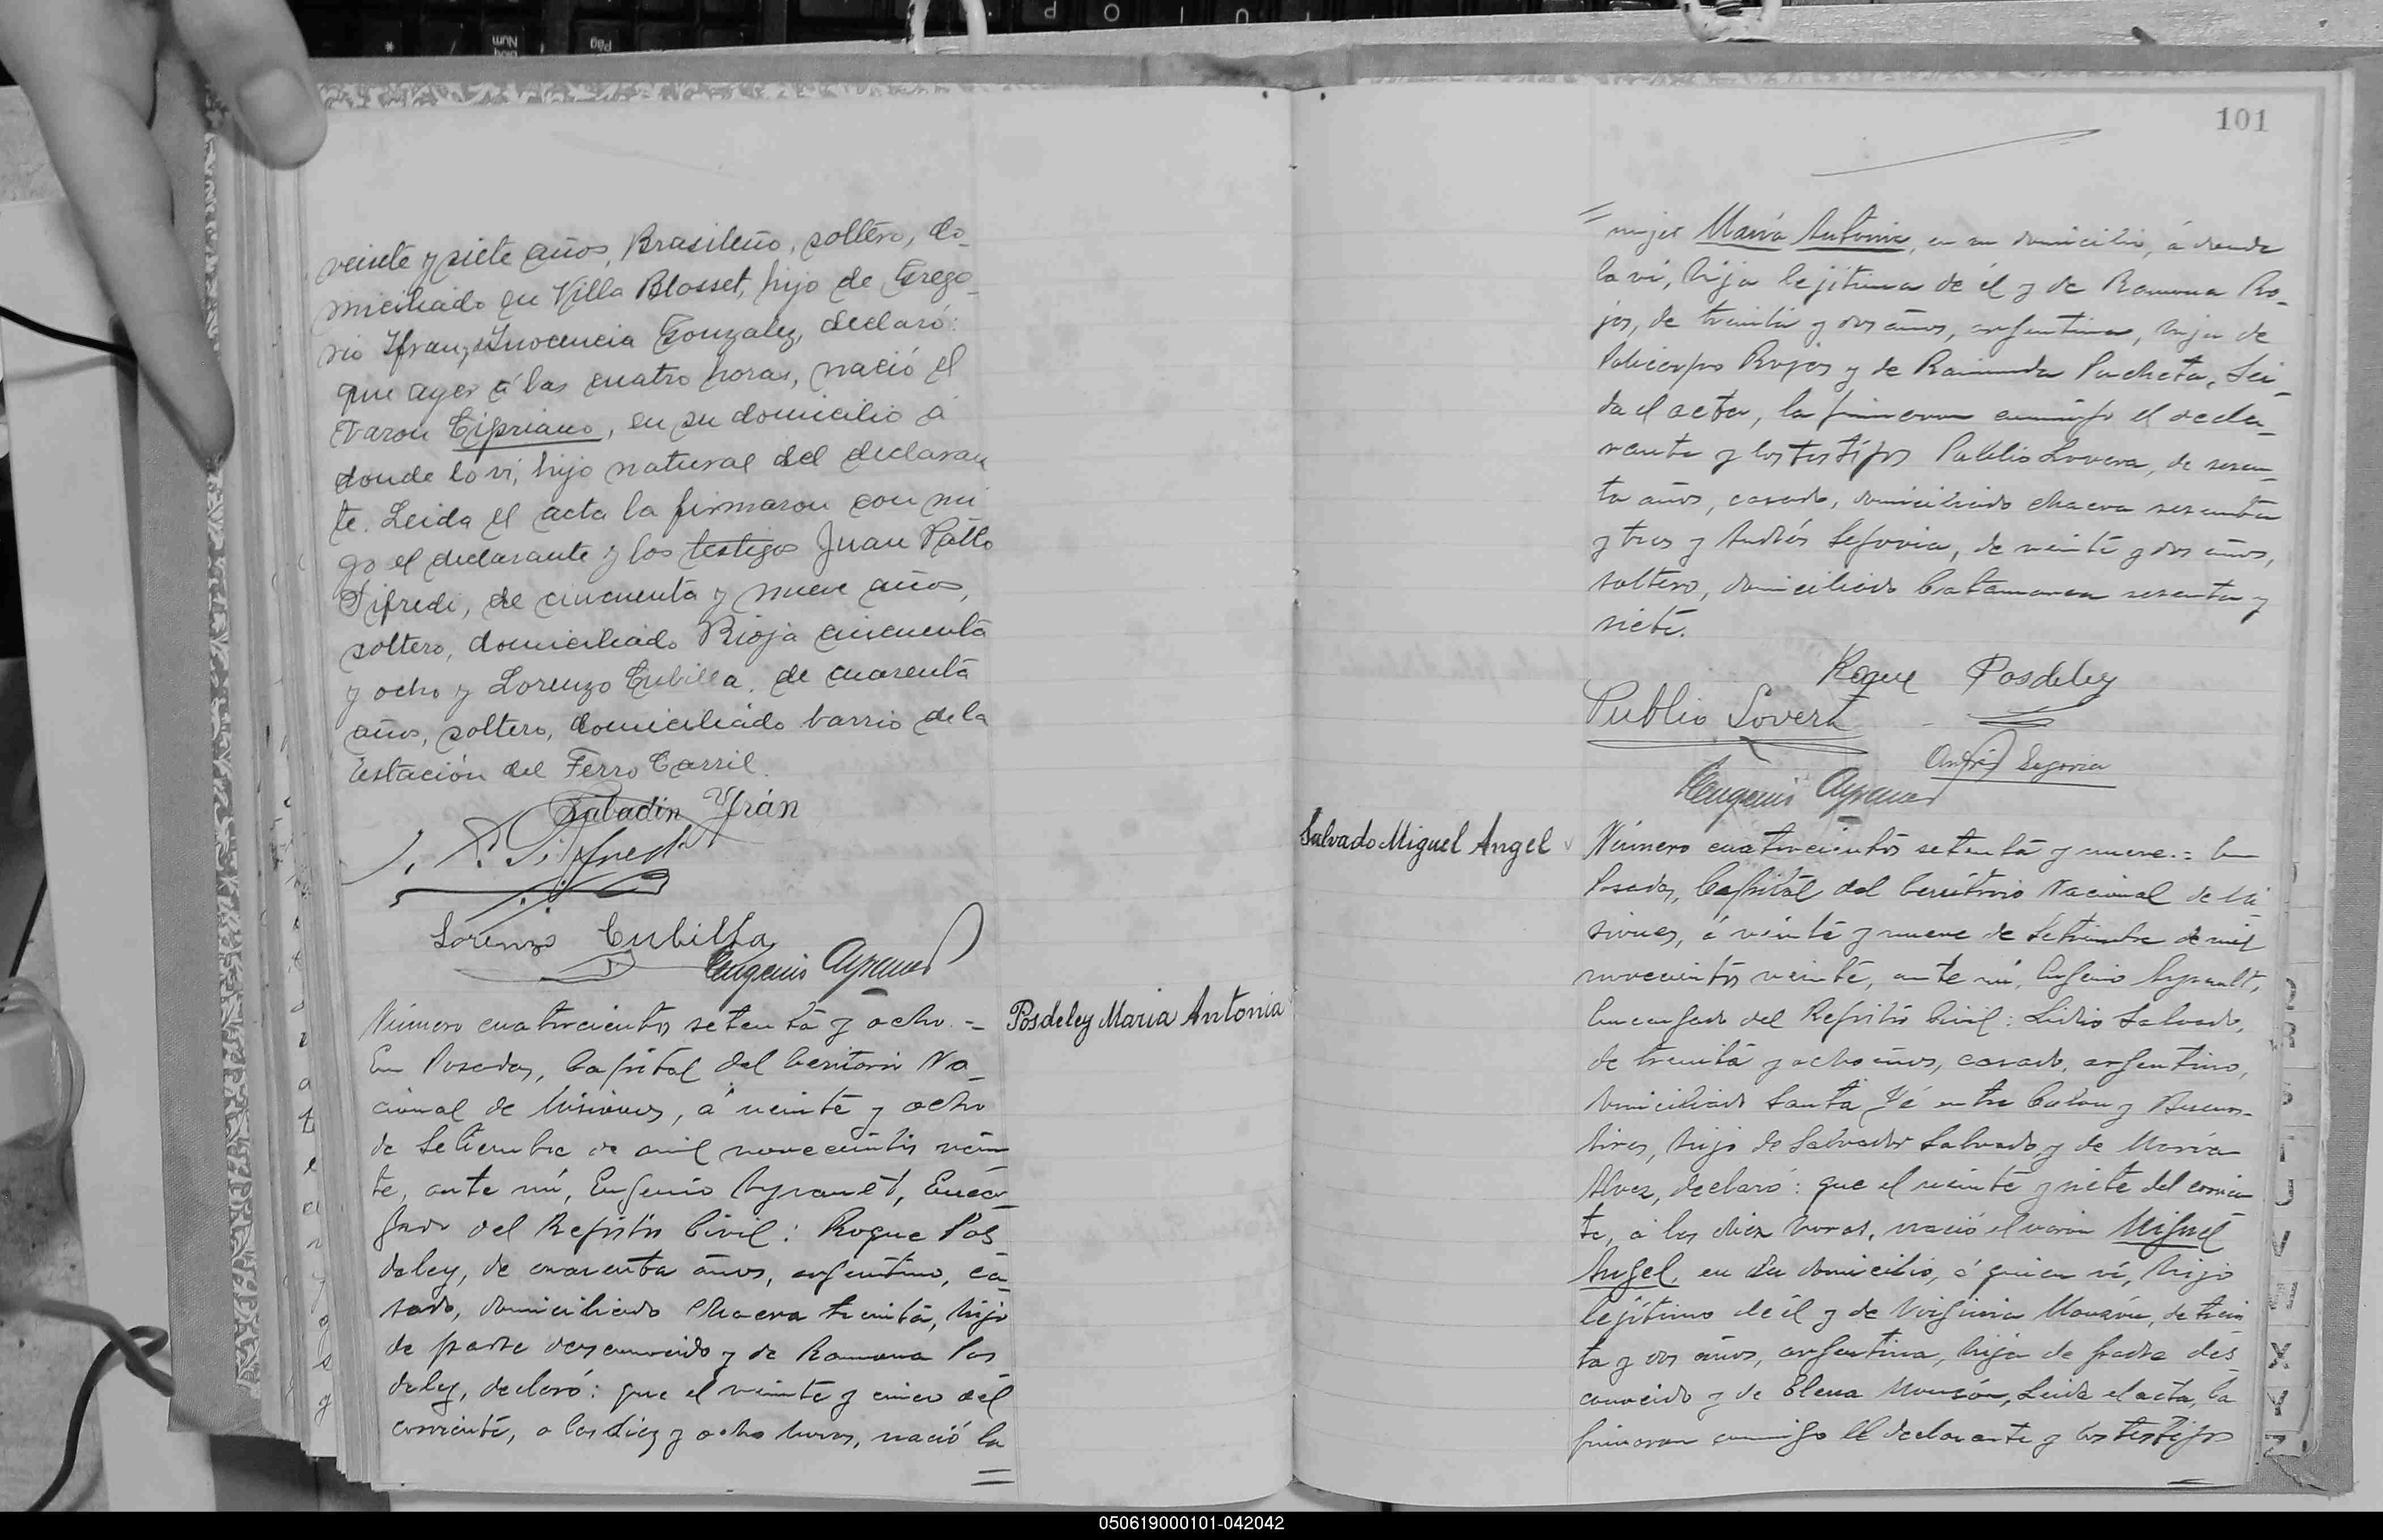 veinte y siete años, Brasileño, soltero, do-
miciliado en Villa Blosset, hijo de Grego-
rio Ifran, e Inocencia Gonzalez, declaró:
que ayer á las cuatro horas, nació el
varon Cipriano, en su domicilio á
donde lo vi, hijo natural del declaran
te. Leida el acta la firmaron con mi
go el declarante y los testigos Juan Pablo
Sifredi, de cincuenta y nueve años,
soltero, domiciliado Rioja cincuenta
y ocho y Lorenzo Cubilla, de cuarenta
años, soltero, domiciliado barrio de la
Estación del Ferro Carril.
Sabadin Yfrán
J. P. Sifredi
Lorenzo Cubilla
Eugenio Ayrault
Número cuatrocientos setenta y ocho. =
Posdeley Maria Antonia
En Posadas, Capital del Territorio Na-
cional de Misiones, á veinte y ocho
de Setiembre de mil novecientos vein
te, ante mí, Eugenio Ayrault, Encar-
gado del Registro Civil: Roque Pos
deley, de cuarenta años, argentino, ca
sado, domiciliado Chacra treinta, hijo
de padre desconocido y de Ramona Pos
deley, declaró: que el veinte y cinco del
corriente, a las diez y ocho horas, nació la
=
101
= mujer María Antonia, en su domicilio, á donde
la ví, hija legítima de él y de Ramona Ro-
jas, de treinta y dos años, argentina, hija de
Policarpo Rojas y de Raimunda Pucheta. Lei-
da el acta, la firmaron conmigo el decla-
rante y los testigos Publio Lovera, de sesen-
ta años, casado, domiciliado chacra sesenta
y tres y Andrés Segovia, de veinte y dos años,
soltero, domiciliado Catamarca sesenta y
siete.
Roque Posdeley
Publio Lovera
Andrés Segovia
Eugenio Ayrault
Salvado Miguel Angel
Número cuatrocientos setenta y nueve. = En
Posadas, Capital del Territorio Nacional de Mi-
siones, á veinte y nueve de Setiembre de mil
novecientos veinte, ante mí, Eugenio Ayrault,
Encargado del Registro Civil: Lidio Salvado,
de treinta y ocho años, casado, argentino,
domiciliado Santa Fé entre Colon y Buenos-
Aires, hijo de Salvador Salvado y de María
Alvez, declaró: que el veinte y siete del corrien
te, á las diez horas, nació el varón Miguel
Angel, en su domicilio, á quien ví, hijo
legítimo de él y de Virginia Monzón, de trein
ta y dos años, argentina, hija de padre des-
conocido y de Elena Monzón, Leida el acta, la
firmaron conmigo el declarante y los testigos
050619000101-042042